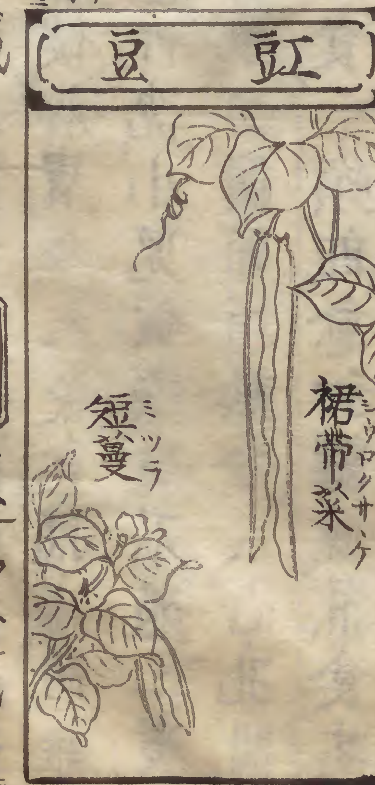 豇豆
裙帶菜
ジウロクサヽケ
短蔓
ミツラ